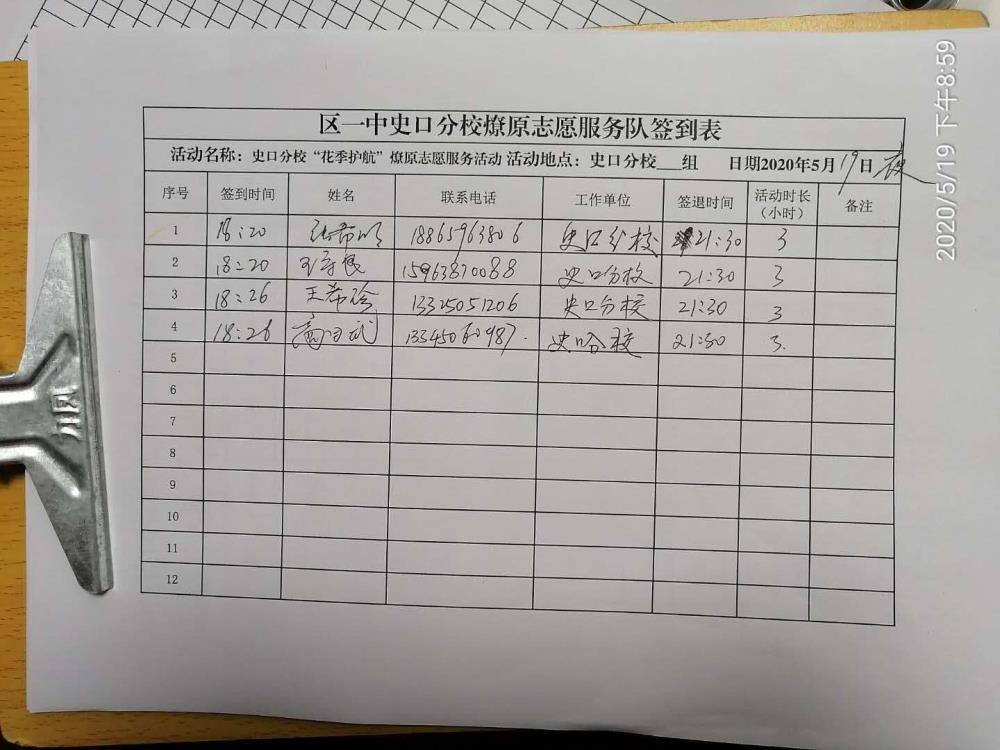 区一中史口分校燎原志愿服务队签到表
活动名称：史口分校“花季护航”燎原志愿服务活动 活动地点：史口分校__组 日期2020年5月19日 夜
序号 签到时间 姓名 联系电话 工作单位 签退时间 活动时长（小时） 备注
1 18:20 18865963806 史口分校 21:30 3
2 18:20 15963870088 史口分校 21:30 3
3 18:26 王希玲 13325051206 史口分校 21:30 3
4 18:26 史口分校 21:30 3.
5
6
7
8
9
10
11
12
2020/5/19 下午8:59